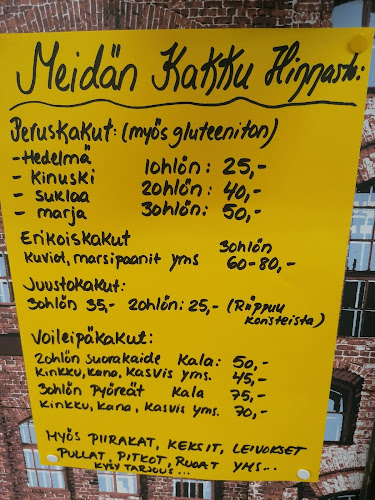 Meidän Kakku Hinnasto:
Peruskakut: (myös gluteeniton)
- Hedelmä 10hlön: 25,-
- Kinuski 20hlön: 40,-
- Suklaa 30hlön: 50,-
- marja
Erikoiskakut 30hlön
Kuviot, marsipaanit yms 60-80,-
Juustokakut:
30hlön 35,- 20hlön: 25,- (Riippuu koristeista)
Voileipäkakut:
20hlön suorakaide Kala: 50,-
Kinkku, kana, kasvis yms. 45,-
30hlön Pyöreät Kala 75,-
Kinkku, kana, kasvis yms. 70,-
MYÖS PIIRAKAT, KEKSIT, LEIVOKSET
PULLAT, PITKOT, RUOAT YMS...
KYSY TARJOUS...